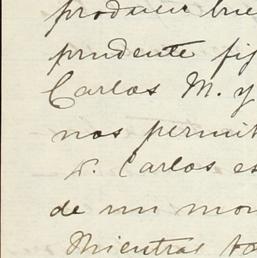 producir bue
prudente fij
Carlos M. y
nos permit
D. Carlos es
de un mon
Mientras to